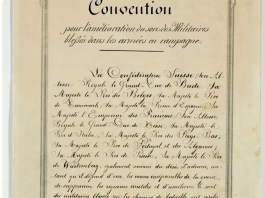 Convention
pour l'amélioration du sort des Militaires
blessés dans les armées en campagne.
La Confédération Suisse, Son Al-
tesse Royale le Grand-Duc de Bade, Sa
Majesté le Roi des Belges, Sa Majesté le Roi
de Danemark, Sa Majesté la Reine d'Espagne,
Sa Majesté l'Empereur des Français, Son Altesse
Royale le Grand-Duc de Hesse, Sa Majesté le
Roi d'Italie, Sa Majesté le Roi des Pays-Bas,
Sa Majesté le Roi de Portugal et des Algarves,
Sa Majesté le Roi de Prusse, Sa Majesté le Roi
de Württemberg, également animés du désir d'adoucir, au-
tant qu'il dépend d'eux, les maux
de supprimer les rigueurs inutiles et d'améliorer le sort
des militaires blessés sur les champs de bataille, ont